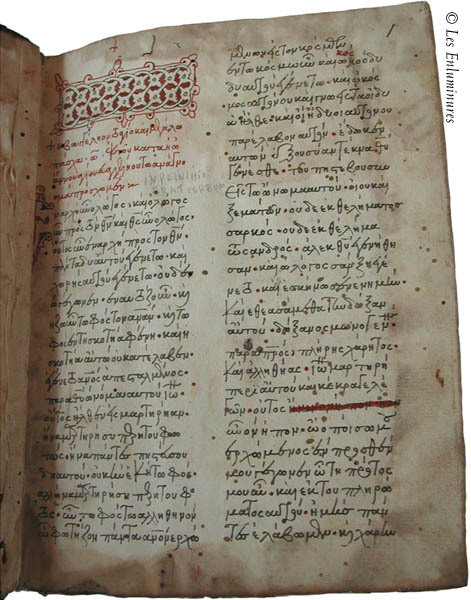 IN PRINCIPIO
ERAT VERBUM
ἐν ἀρχῆ ἦν ὁ λόγος· καὶ ὁ λόγος
ἦν πρὸς τὸν θν· καὶ θς ἦν ὁ λόγος·
οὗτος ἦν ἐν ἀρχῆ πρὸς τὸν θν·
πάντα δι αὐτοῦ ἐγένετο· καὶ
χωρὶς αὐτοῦ ἐγένετο οὐδὲ ἓν
ὃ γέγονεν· ἐν αὐτῶ ζωὴ ἦν· κ ἡ
ζωὴ ἦν τὸ φῶς τῶν ἀνων· κ τὸ
φῶς ἐν τῆ σκοτία φαίνει· καὶ ἡ
σκοτία αὐτὸ οὐ κατέλαβεν·
ἐγένετο ἄνος ἀπεσταλμένος
παρὰ θυ ὄνομα αὐτοῦ ἰω·
οὗτος ἦλθεν εἰς μαρτυρίαν·
ἵνα μαρτυρήση περὶ τοῦ φω
τός· ἵνα πάντες πιστεύσωσι
δι αὐτοῦ· οὐκ ἦν ἐκεῖνο τὸ φῶς·
ἀλλ ἵνα μαρτυρήση περὶ τοῦ φω
τός· ἦν τὸ φῶς τὸ ἀληθινὸν
ὃ φωτίζει πάντα ἄνον ἐρχό
μενον εἰς τὸν κόσμον· ἐν τῶ
κόσμω ἦν· καὶ ὁ κόσμος δι
αὐτοῦ ἐγένετο· καὶ ὁ κόσ
μος αὐτὸν οὐκ ἔγνω· εἰς τὰ ἴδι
α ἦλθε· καὶ οἱ ἴδιοι αὐτὸν οὐ
παρέλαβον· ἔδωκεν
αὐτοῖς ἐξουσίαν τέκνα θυ
γενέσθαι· τοῖς πιστεύουσιν
εἰς τὸ ὄνομα αὐτοῦ· οἳ οὐκ
ἐξ αἱμάτων· οὐδὲ ἐκ θελήματος
σαρκός· οὐδὲ ἐκ θελήμα
τος ἀνδρός· ἀλλ ἐκ θυ ἐγεννήθη
σαν· καὶ ὁ λόγος σὰρξ ἐγέ
νετο· καὶ ἐσκήνωσεν ἐν ἡμῖν·
καὶ ἐθεασάμεθα τὴν δόξαν
αὐτοῦ· δόξαν ὡς μονογεν
παρὰ πρς· πλήρης χάριτος
καὶ ἀληθείας· ἰω μαρτυρεῖ
περὶ αὐτοῦ καὶ κέκραγε λέ
γων· οὗτος
ἦν ὃν εἶπον· ὁ ὀπίσω μου
ἐρχόμενος ἔμπροσθέν
μου γέγονεν ὅτι πρῶτός
μου ἦν· καὶ ἐκ τοῦ πληρώ
ματος αὐτοῦ· ἡμεῖς πάν
τες ἐλάβομεν· κ χάριν
© Les Enluminures